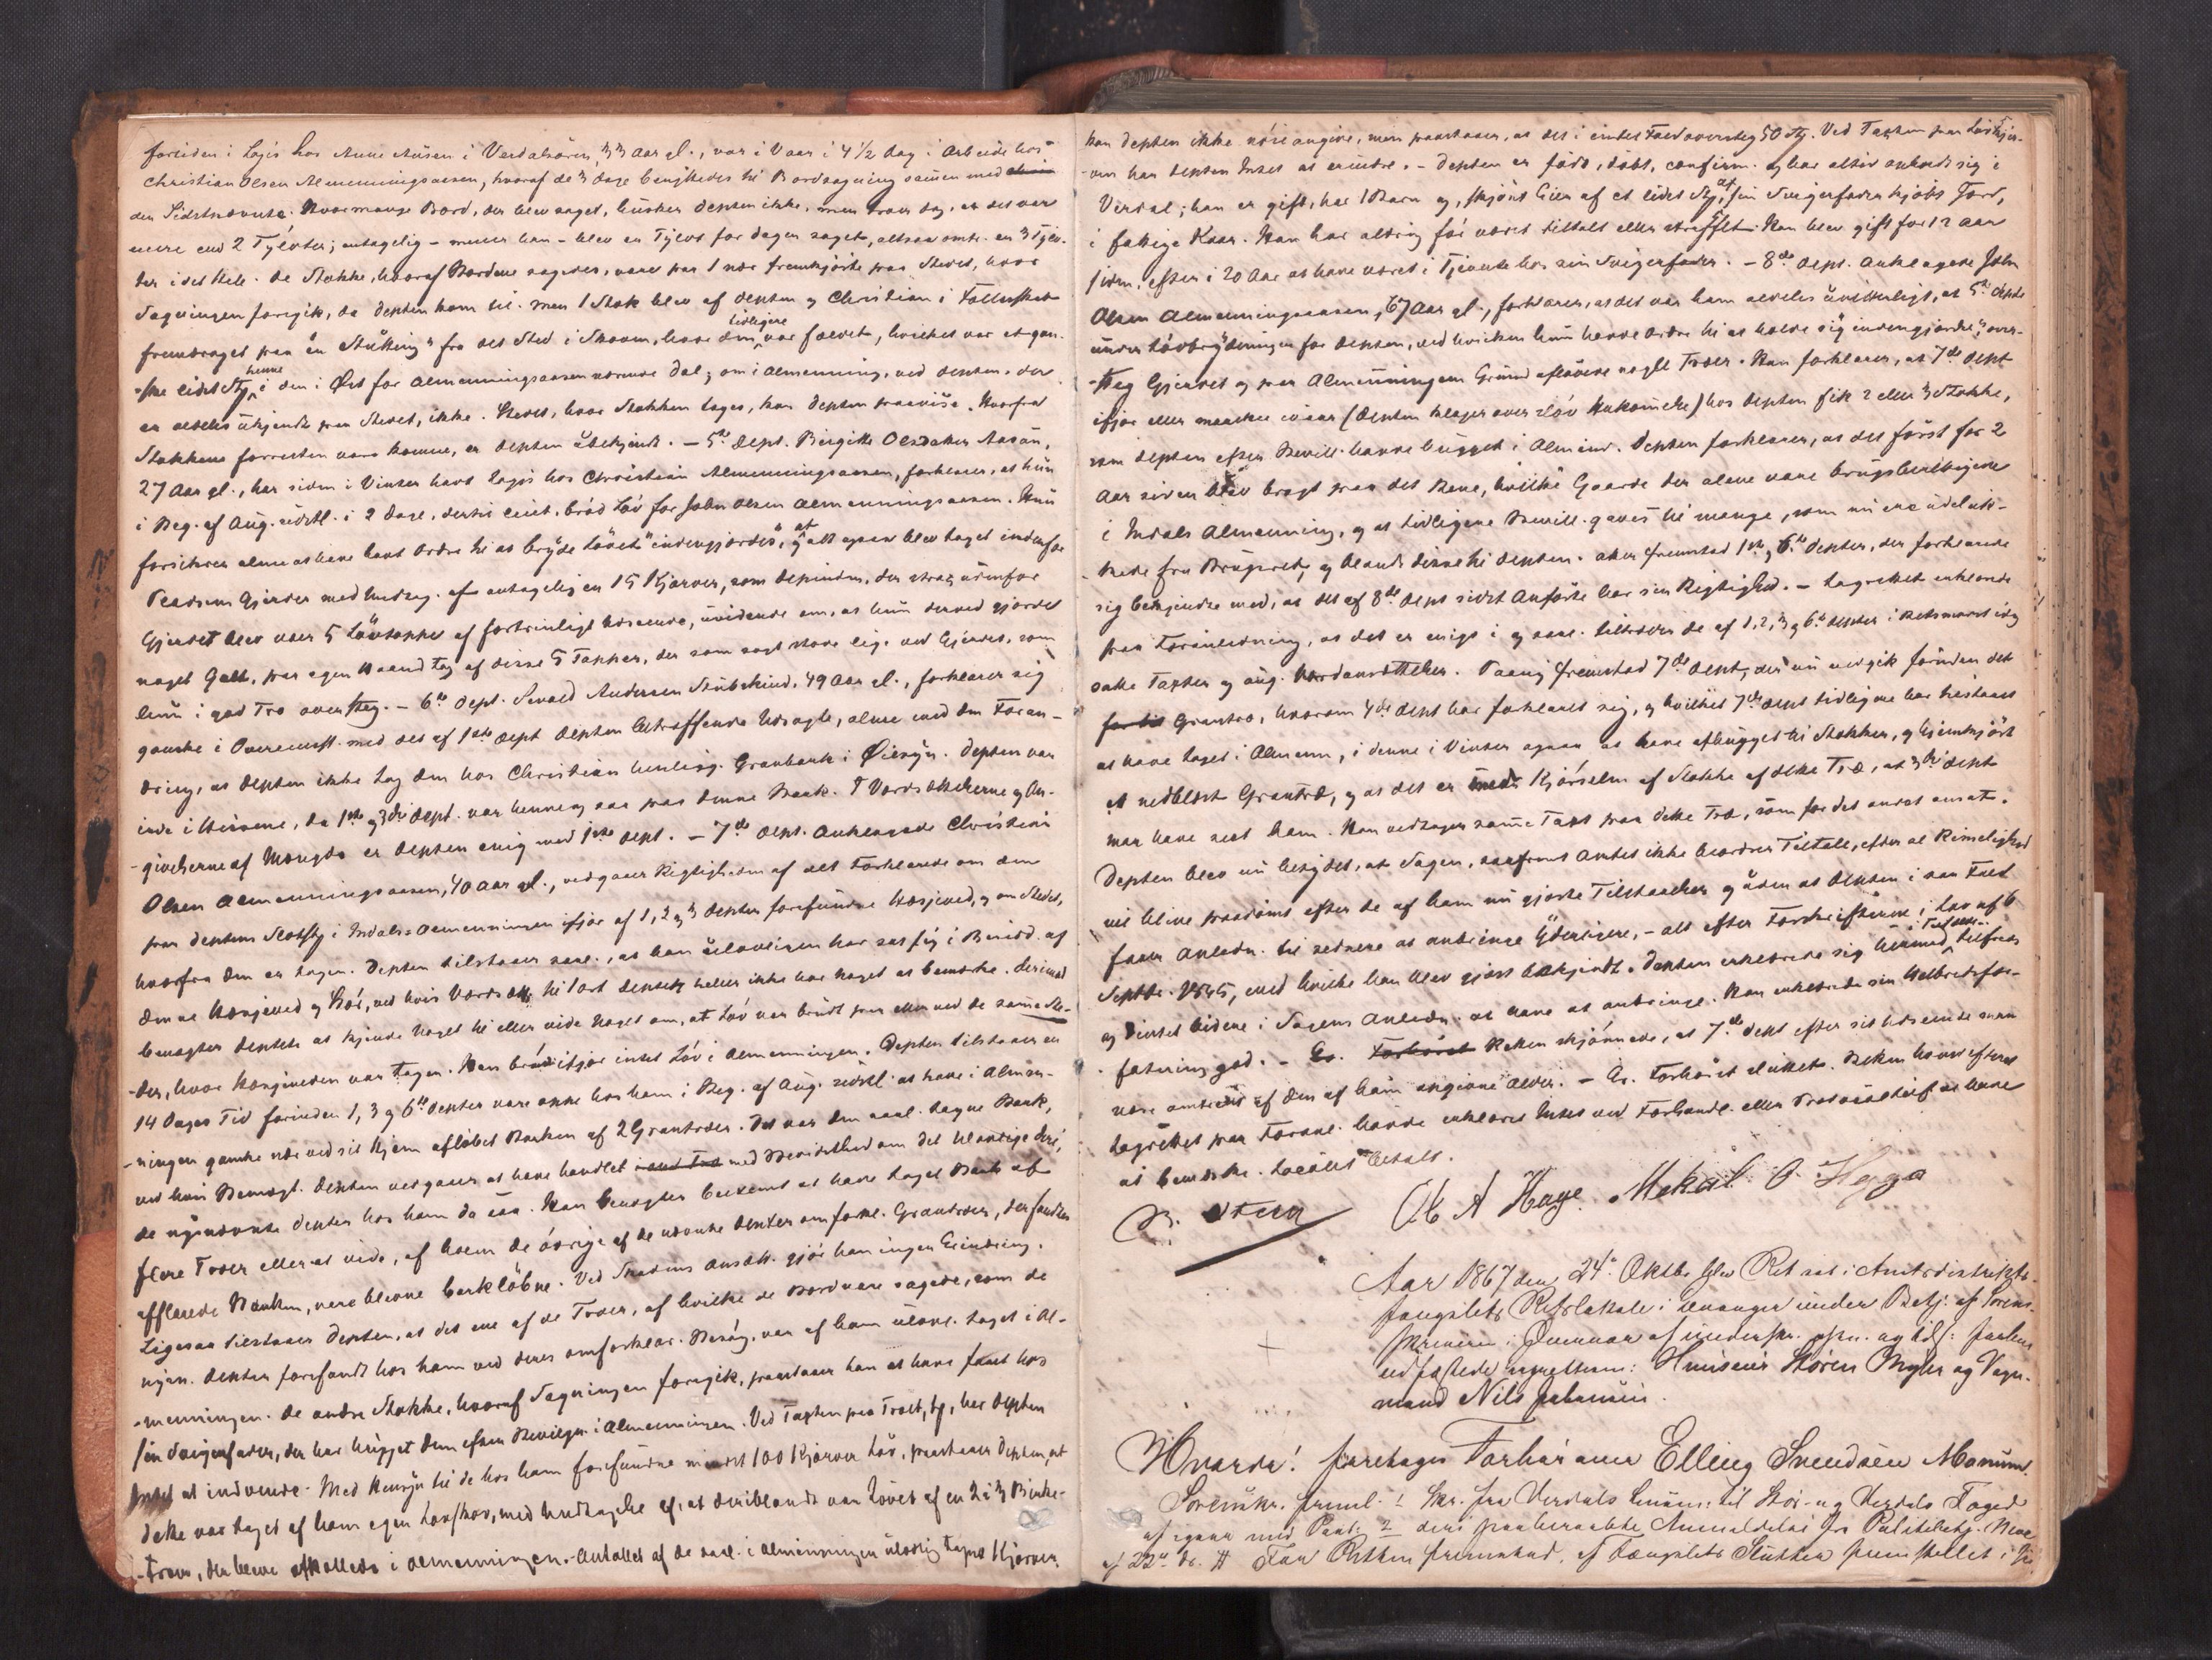 fortiden i Logis hos Anne Ausen i Verdalsøren, 33 Aar gl., var i Vaar i 4 1/2 Dag i Arbeide hos
Christian Olsen Almenningsaasen, hvoraf de 3 Dage benyttedes til Bordsagning sammen med
den Sidstnævnte. Hvormange Bord, der blev saget, husker Depten ikke, men troer dog, at det var
mere end 2 Tylvter; antagelig - mener han - blev en Tylvt for Dagen saget, altsaa omtr. en 3 Tylv-
ter i det Hele. De Stokke, hvoraf Bordene sagedes, vare paa 1 nær fremkjørte paa Stedet, hvor
Sagningen foregik, da Depten kom til. men 1 Stok blev af Depten og Christian i Fællesskab
fremdraget paa en "Stutting" fra det Sted i Skoven, hvor den tidligere var fældet, hvilket var et gan-
ske lidet Stk. henne i den i Øst for Almenningsaasen værende Dal; om i Almenning, ved Depten, der
er aldeles ukjendt paa Stedet, ikke. Stedet, hvor Stokken toges, kan Depten paavise. Hvorfra
Stokkene forresten vare komne, er Depten ubekjendt. - 5te Dept. Birgitte Olsdatter Aasan,
27 Aar gl., har siden i Vinter havt Logis hos Christian Almenningsaasen, forklarer, at hun
i Beg. af Aug. sidstl. i 2 Dage, dertil leiet, brød Løv for John Olsen Almenningsaasen. Hun
forsikrer alene at have havt Ordre til at bryde Løvet "indengjærdes", og at alt ogsaa blev taget indenfor
Pladsens Gjerder med Undtag. af antagelig en 15 Kjærver, som Depinden, der strax udenfor
Gjerdet blev vaer 5 Løvtopper af fortrinligt Udseende, uvidende om, at hun derved gjorde
noget Galt, paa egen Haand tog af disse 5 Topper, der som sagt stode lige ved Gjerdet, som
hun i god Tro oversteg. - 6te Dept. Sevald Andersen Stubskind, 49 Aar gl., forklarer sig
ganske i Overeenst. med det af 1ste Dept Depten betræffende Udsagte, alene med den Foran-
dring, at Depten ikke tog den hos Christian henligg. Granbark i Øiesyn. Depten var
inde i Husene, da 1ste og 3die Dept. var henne og saa paa denne Bark. I Værdsættelserne og An-
givelserne af Mængde er Depten enig med 1ste Dept. - 7de Dept. Anklagede Christian
Olsen Almenningsaasen, 40 Aar gl., vedgaaer Rigtigheden af det Forklarede om den
paa Deptens Slotstg i Indals-Almenningen ifjor af 1, 2 og 3 Depter forefundne Hæsjeved, og om Stedet,
hvorfra den er tagen. Depten tilstaaer saal., at han ulovligen har sat sig i Besidd. af
denne Hæsjeved og Høi, ved hvis Værdsætt. til 1 Ort Depten heller ikke har Noget at bemærke. Derimod
benægter Depten at kjende Noget til eller vide Noget om, at Løv var brudt paa eller ved de samme Ste-
der, hvor Hæsjeveden var tagen. Han brød ifjor intet Løv i Almenningen. Depten tilstaaer en
14 Dages Tid forinden 1, 3 og 6te Depter vare oppe hos ham i Beg. af Aug. sidstl. at have i Almen-
ningen ganske nær ved sit Hjem afløbet Barken af 2 Grantræer. Det var den saal. tagne Bark,
ved hvis Benægt. Depten vedgaaer at have handlet med Bevidsthed om det Ulovlige deri,
de nysnævnte Depter hos ham da saa. Han benægter bestemt at have taget Bark af
flere Træer eller at vide, af hvem de øvrige af de nævnte Depter omforkl. Grantræer, der fandtes
afflaaede Barken, vare blevne barkløbne. Ved Skadens Ansætt. gjør han ingen Erindring.
Ligesaa tilstaaer Depten, at det ene af de Træer, af hvilke de Bord vare sagede, som de
nysn. Depter forefandt hos ham ved deres omforklar. Besøg, var af ham ulovl. taget i Al-
menningen. De andre Stokke, hvoraf Sagningen foregik, paastaaer han at have faaet hos
sin Svigerfader, der har hugget dem efter Bevilgn. i Almenningen. Ved Taxten paa Træet, , har Depten
Intet at indvende. Med Hensyn til de hos ham forefundne mindst 100 Kjærver Løv, paastaaer Depten, at
dette var taget af hans egen Løvskov, med Undtagelse af, at deriblandt var Løvet af en 2 à 3 Birke-
træer, der bleve afkollede i Almenningen. Antallet af de saal. i Almenningen ulovlig tagne Kjærver,
kan Depten ikke nøie angive, men paastaaer, at det i intet Fald oversteg 50 Stk. Ved Taxten paa Løvkjær-
ven har Depten Intet at erindre. - Depten er født, døbt, confirm. og har altid opholdt sig i
Verdal; han er gift, har 1 Barn og, skjønt Eier af et lidet Stk. af sin Svigerfader kjøbt Jord,
i fattige Kaar. Han har aldrig før været tiltalt eller straffet. Han blev gift for 12 Aar
siden, efter i 20 Aar at have været i Tjeneste hos sin Svigerfader. - 8de Dept. Anklagede John
Olsen Almenningsaasen, 67 Aar gl., forklarer, at det var ham aldeles uvitterligt, at 5te Depte
under Løvbrydningen for Depten, ved hvilken hun havde Ordre til at holde sig indengjærdes, over-
steg Gjerdet og paa Almenningens Grund afløvede nogle Træer. Han forklarer, at 7de Dept
ifjor eller maaskee ivaar (Depten klager over sløv Hukommelse) hos Depten fik 2 eller 3 Stokke,
som Depten efter Bevill. havde hugget i Almenn. Depten forklarer, at det først for 2
Aar siden blev bragt paa det Rene, hvilke Gaarde der alene vare brugsberettigede
i Indals Almenning, og at tidligere Bevill. gaves til mange, som nu ere udeluk-
kede fra Brugsret, og blandt disse til Depten. Atter fremstod 1ste og 6te Depter, der forklarede
sig bekjendte med, at det af 8de Dept sidst Anførte har sin Rigtighed. - Lagrettet erklærede
paa Foranledning, at det er enigt i og saal. tiltræder de af 1, 2, 3 og 6te Depter i Retsmødet idag
satte Taxter og ang. Værdansættelser. Paany fremstod 7de Dept, der nu vedgik foruden det
Grantræ, hvorom 4de Dept har forklaret sig, og hvilket 7de Dept tidligere har tilstaaet
at have taget i Almenn., i denne i Vinter ogsaa at have afhugget til Stokker, og hjemkjørt
et nedblæst Grantræ, og at det er under Kjørselen af Stokke af dette Træ, at 3die Dept
maa have seet ham. Han vedtager samme Taxt paa dette Træ, som for det andet ansat.
Depten blev nu betydet, at Sagen, saafremt Amtet ikke beordrer Tiltale, efter al Rimelighed
vil blive paadømt efter de af ham nu gjorte Tilstaaelser og uden at Depten i saa Fald
faaer Anledn. til sednere at anbringe Yderligere, - alt efter Forskrifterne i Lov af 6
Septbr. 1845, med hvilke han blev gjort bekjendt. Depten erklærede sig hermed tilfreds
og Intet videre i Sagens Anledn. at have at anbringe. Han erklærede sin Helbredsfor-
fatning god. - Retten skjønnede, at 7de Dept efter sit Udseende maa
være omtrent af den af ham angivne Alder. - Forhøret sluttet. Retten hævet efterat
Lagrettet paa Foranl. havde erklæret Intet ved Forhandl. eller Protocoltilf. at have
at bemærke. Localet betalt.
B. Stern Ole A Hage Mekal O. Hegge
Aar 1867 den 24de Oktbr blev Ret sat i Amtsdistrikts-
fængslets Retslokale i Levanger under Betj. af Sorens-
kriveren i Overvær af underskr. og tils: faaende
edfæstede Mænd: Huuseier Søren Myhr og Vogn-
mand Nils Johansen.
Hvorda! foretoges Forhør over Elling Svendsen Monum.
Sorenskr. freml. 1 Skr. fra Verdals Lensm: til Stør- og Verdals Foged
af igaar med Paat. 2 deri paaberaabte Anmeldelse fra Politibetj.
af 22de ds. # For Retten fremstod, af Fængslets Slutter fremstillet i